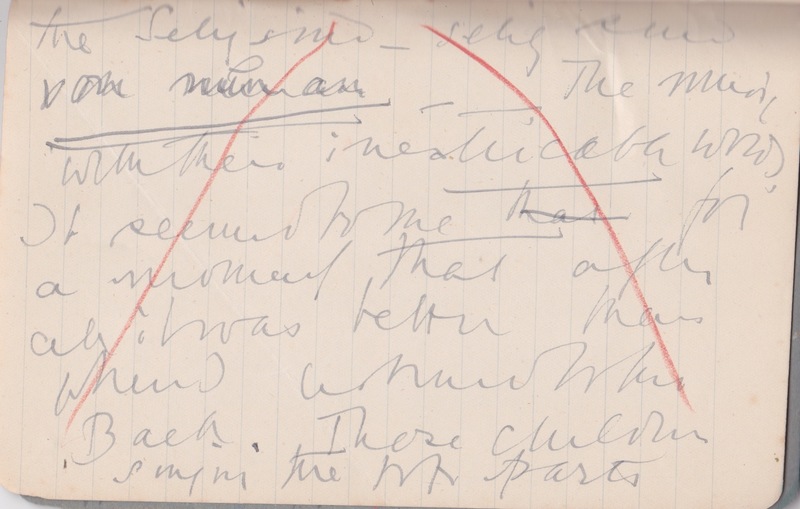 the Selig sind — selig sind
The music,
with their inextricable words
It seemed to me that for
a moment that after
all it was better than
when I returned to the
Bach. Those children
singing the two parts